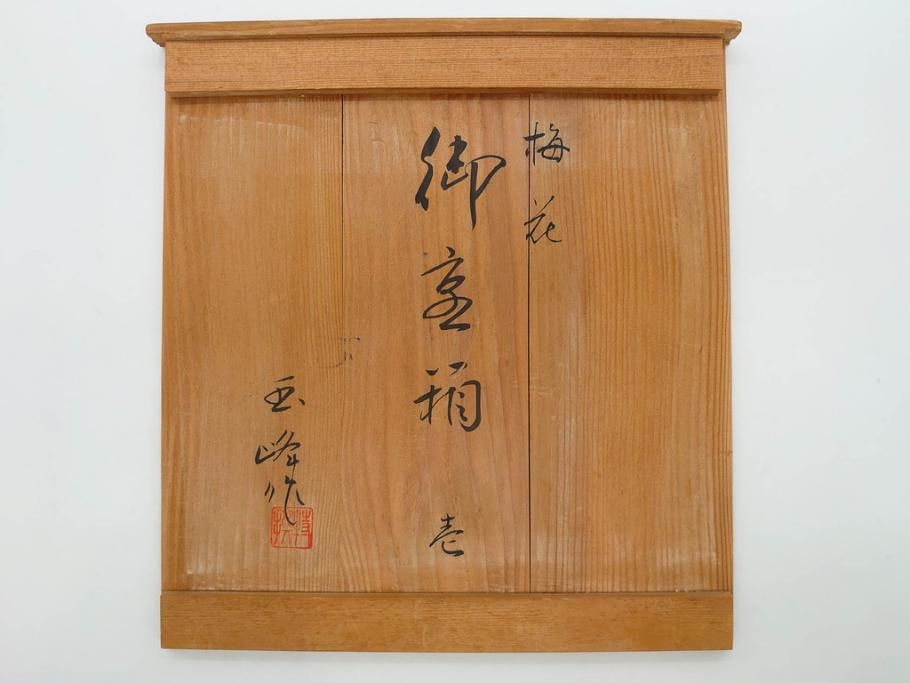 梅花
御箱 壱
玉峰作